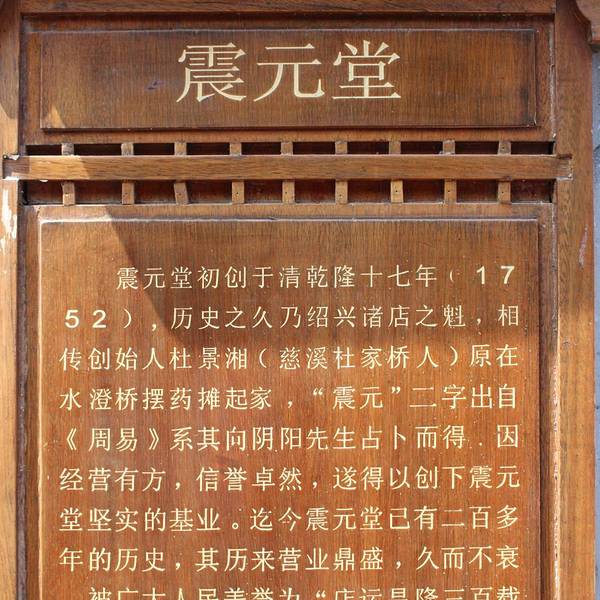 震元堂
震元堂初创于清乾隆十七年（17
52），历史之久乃绍兴诸店之魁，相
传创始人杜景湘（慈溪杜家桥人）原在
水澄桥摆药摊起家，“震元”二字出自
《周易》系其向阴阳先生占卜而得．因
经营有方，信誉卓然，遂得以创下震元
堂坚实的基业。迄今震元堂已有二百多
年的历史，其历来营业鼎盛，久而不衰
被广大人民美誉为“店运昌隆三百载